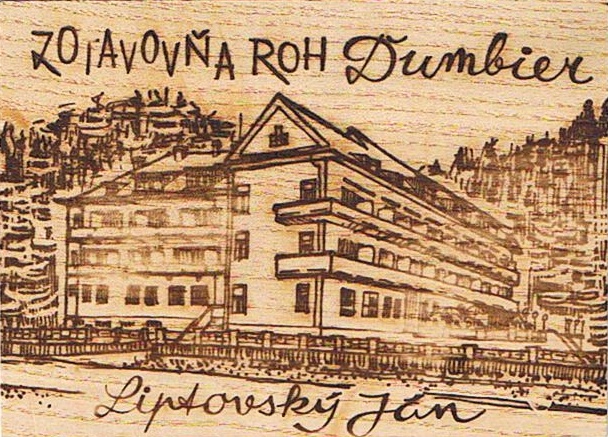 ZOTAVOVŇA ROH Ďumbier
Liptovský Ján